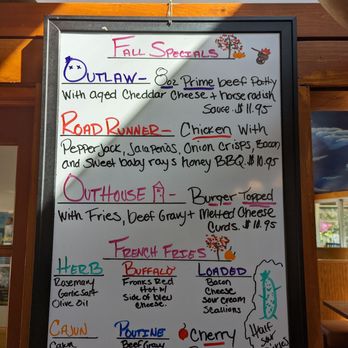 Fall Specials
Outlaw - 8oz Prime beef Patty
With aged Cheddar Cheese + horseradish
Sauce. $11.95
Road Runner - Chicken With
Pepperjack, Jalapenos, Onion Crisps, Bacon,
and Sweet baby rays honey BBQ. $10.95
Outhouse - Burger Topped
With Fries, Beef Gravy + Melted Cheese
Curds. $11.95
French Fries
Herb
Rosemary
Garlic Salt
Olive Oil
Buffalo
Franks Red
Hot w/
Side of bleu
Cheese.
Loaded
Bacon
Cheese
Sour Cream
Scallions
Half
Sour
Cajun
Cajun
Poutine
Beef Gravy
Cherry